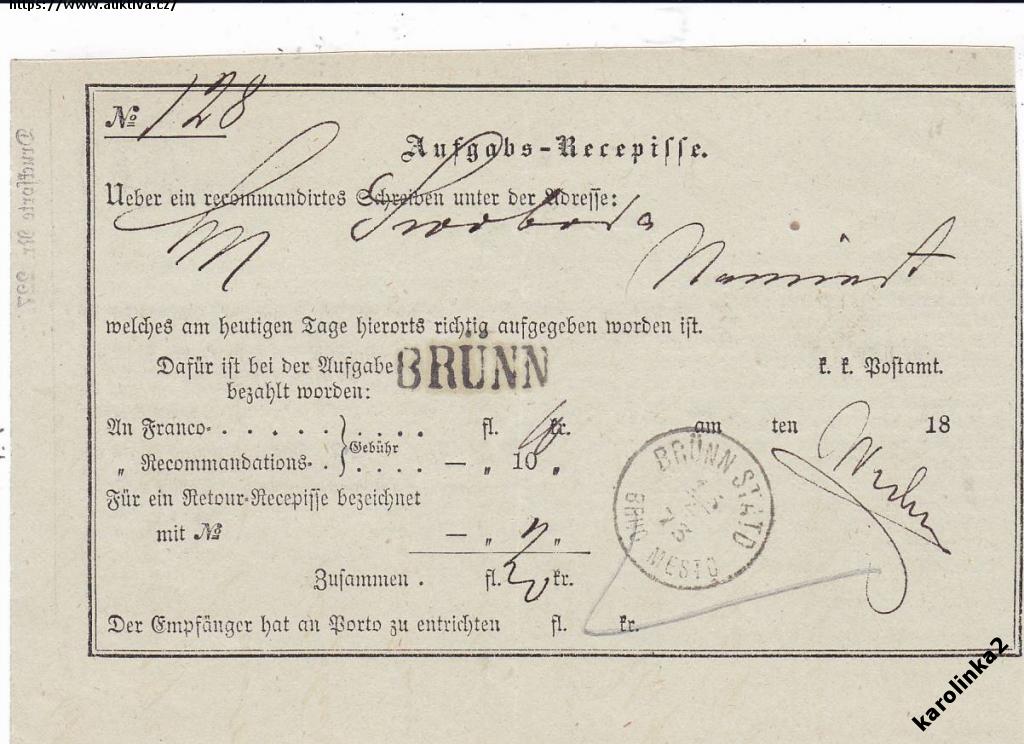 https://www.auktiva.cz/
№ 128
Aufgabs-Recepisse.
Ueber ein recommandirtes Schreiben unter der Adresse:
Swoboda
welches am heutigen Tage hierorts richtig aufgegeben worden ist.
Dafür ist bei der Aufgabe BRÜNN k. k. Postamt.
bezahlt worden:
An Franco- . . . . . . . . . fl. kr. am ten 18
Gebühr
„ Recommandations- . . . . . — „ 10 „
BRÜNN STADT
BRNO MESTO
Für ein Retour-Recepisse bezeichnet
mit № — „ „
Zusammen . fl. kr.
Der Empfänger hat an Porto zu entrichten fl. kr.
Drucksorte Nr.
karolinka2